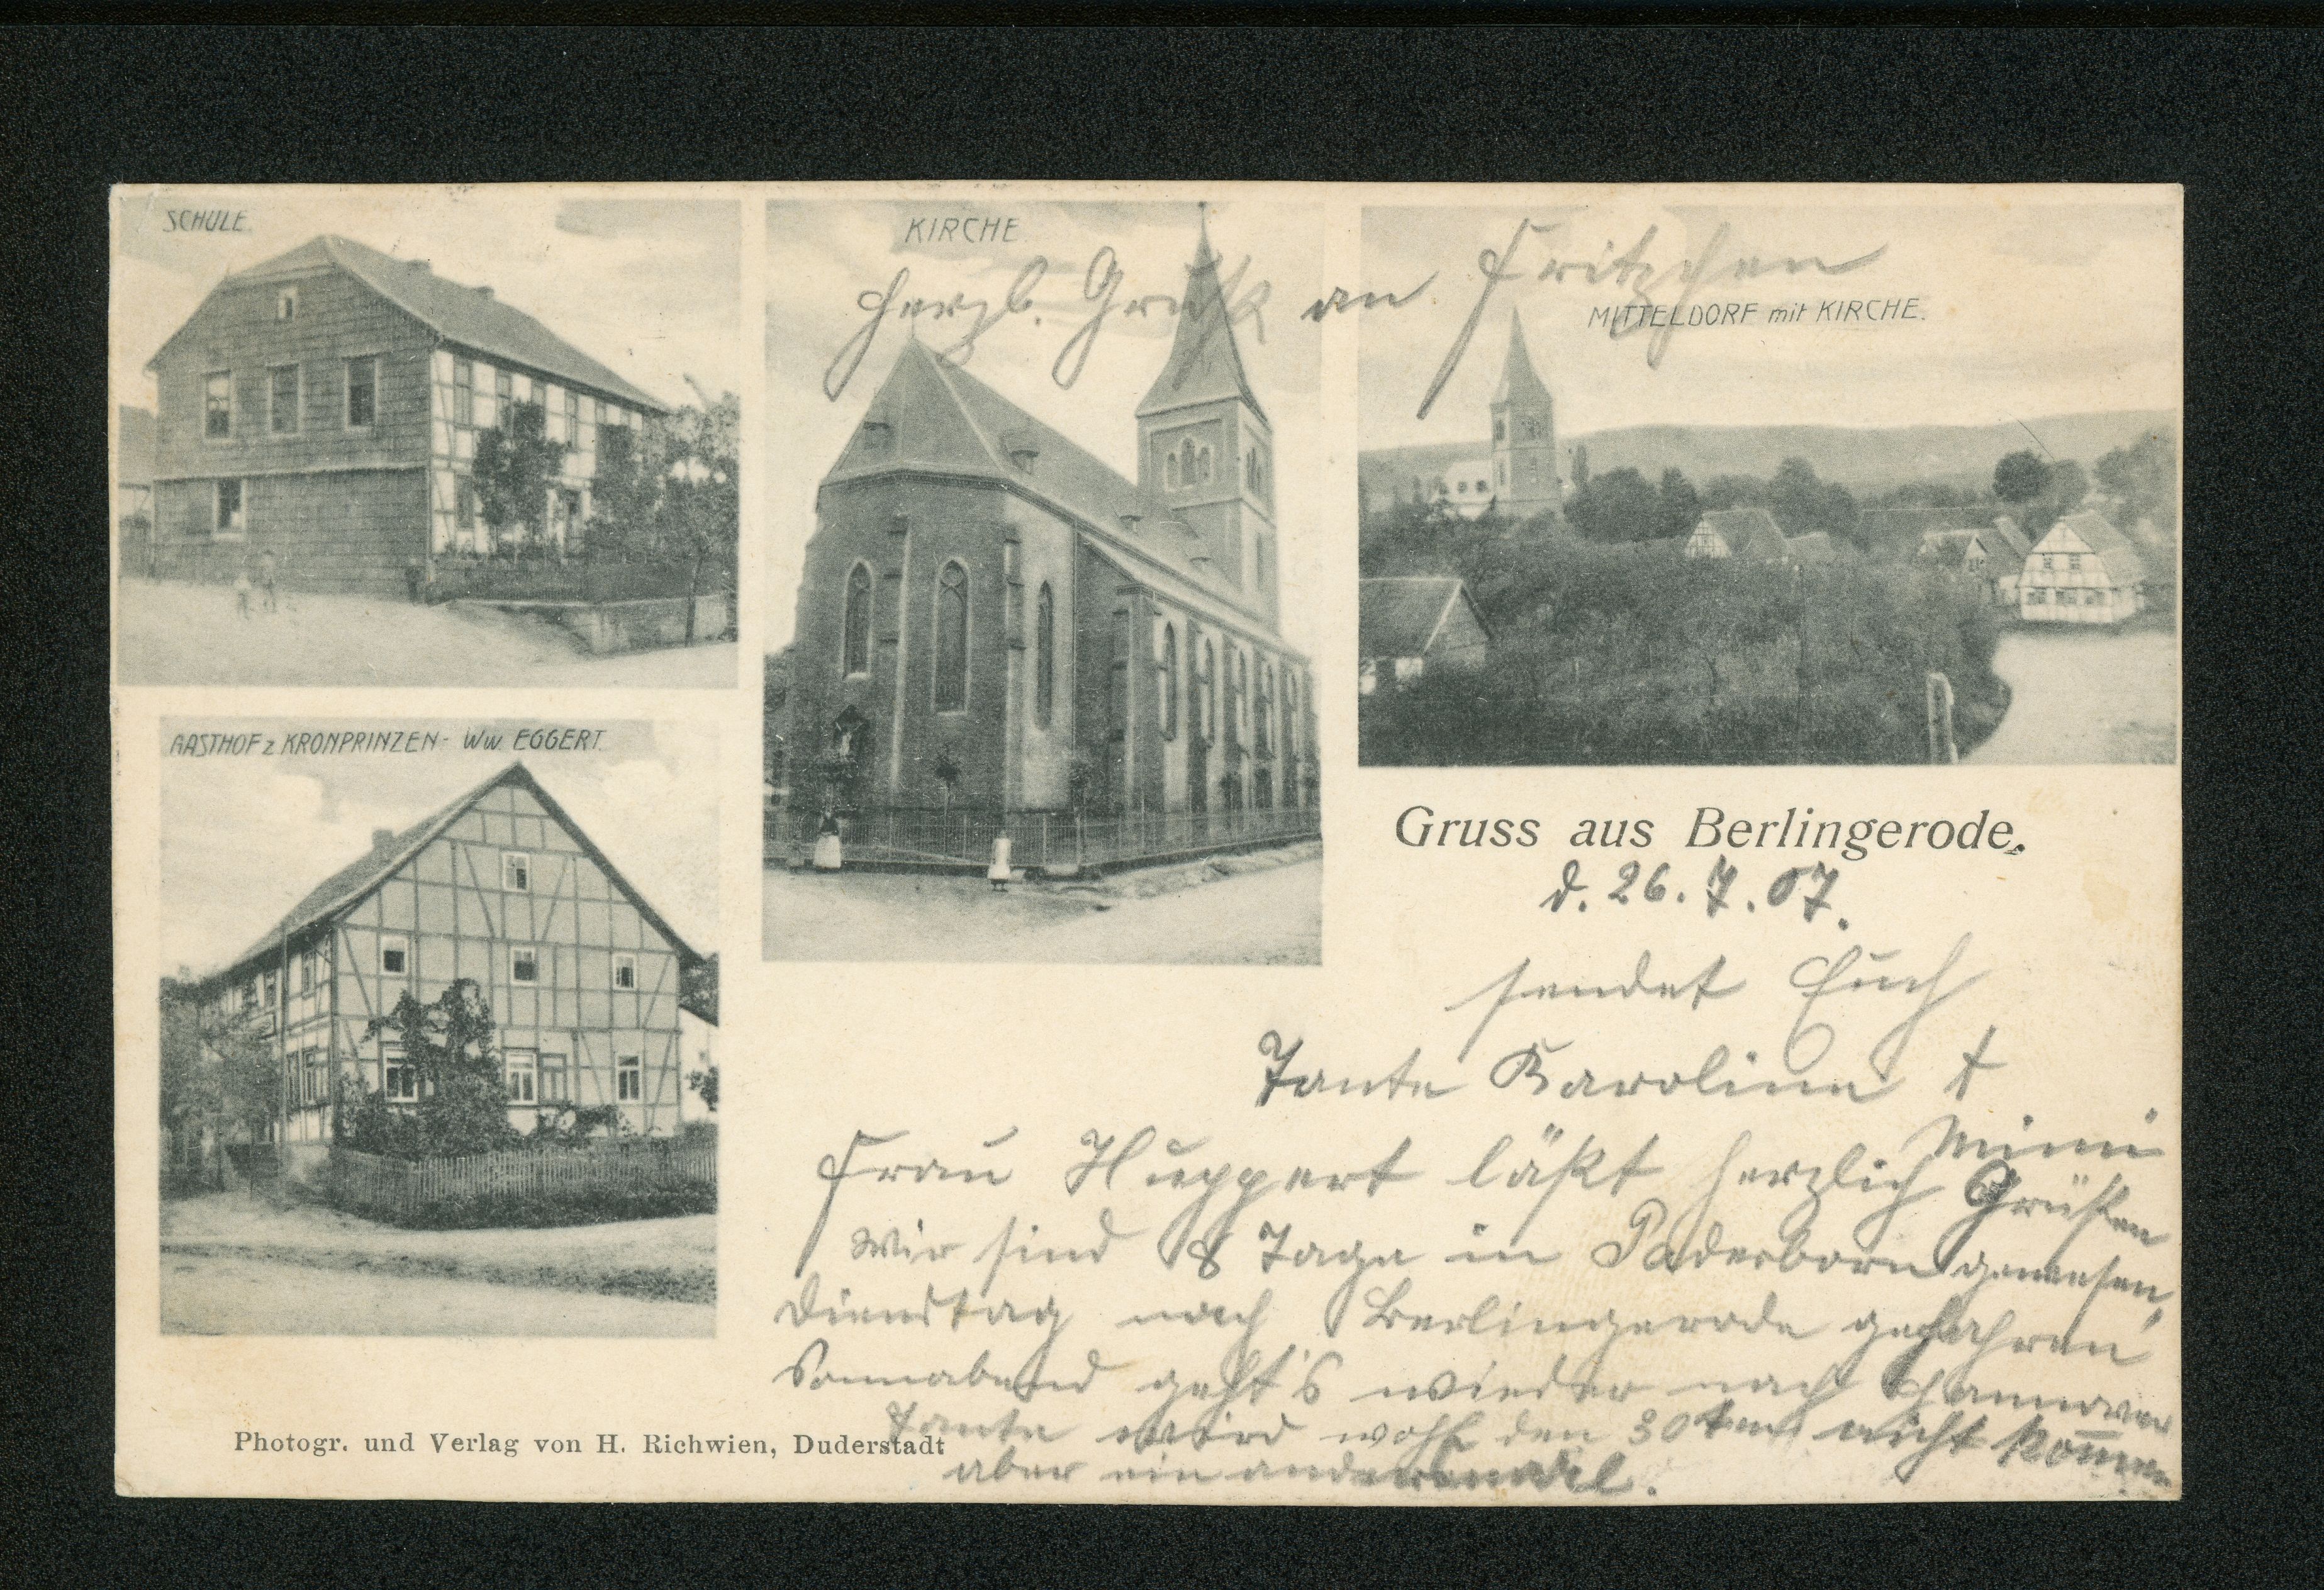 SCHULE.
KIRCHE
herzl. Gruß an Fritzchen
MITTELDORF mit KIRCHE.
GASTHOF z KRONPRINZEN - Ww. EGGERT.
Gruss aus Berlingerode.
d. 26. 7. 07.
sendet Euch
Tante Karoline +
Mimi
Frau Huppert läßt herzlich Grüßen
Wir sind 8 Tage in Paderborn gewesen,
Dienstag nach Berlingerode gefahren
Sonnabend geht's wieder nach Hannover
Tante wird wohl den 30ten nicht kom̅en
aber ein andermal.
Photogr. und Verlag von H. Richwien, Duderstadt